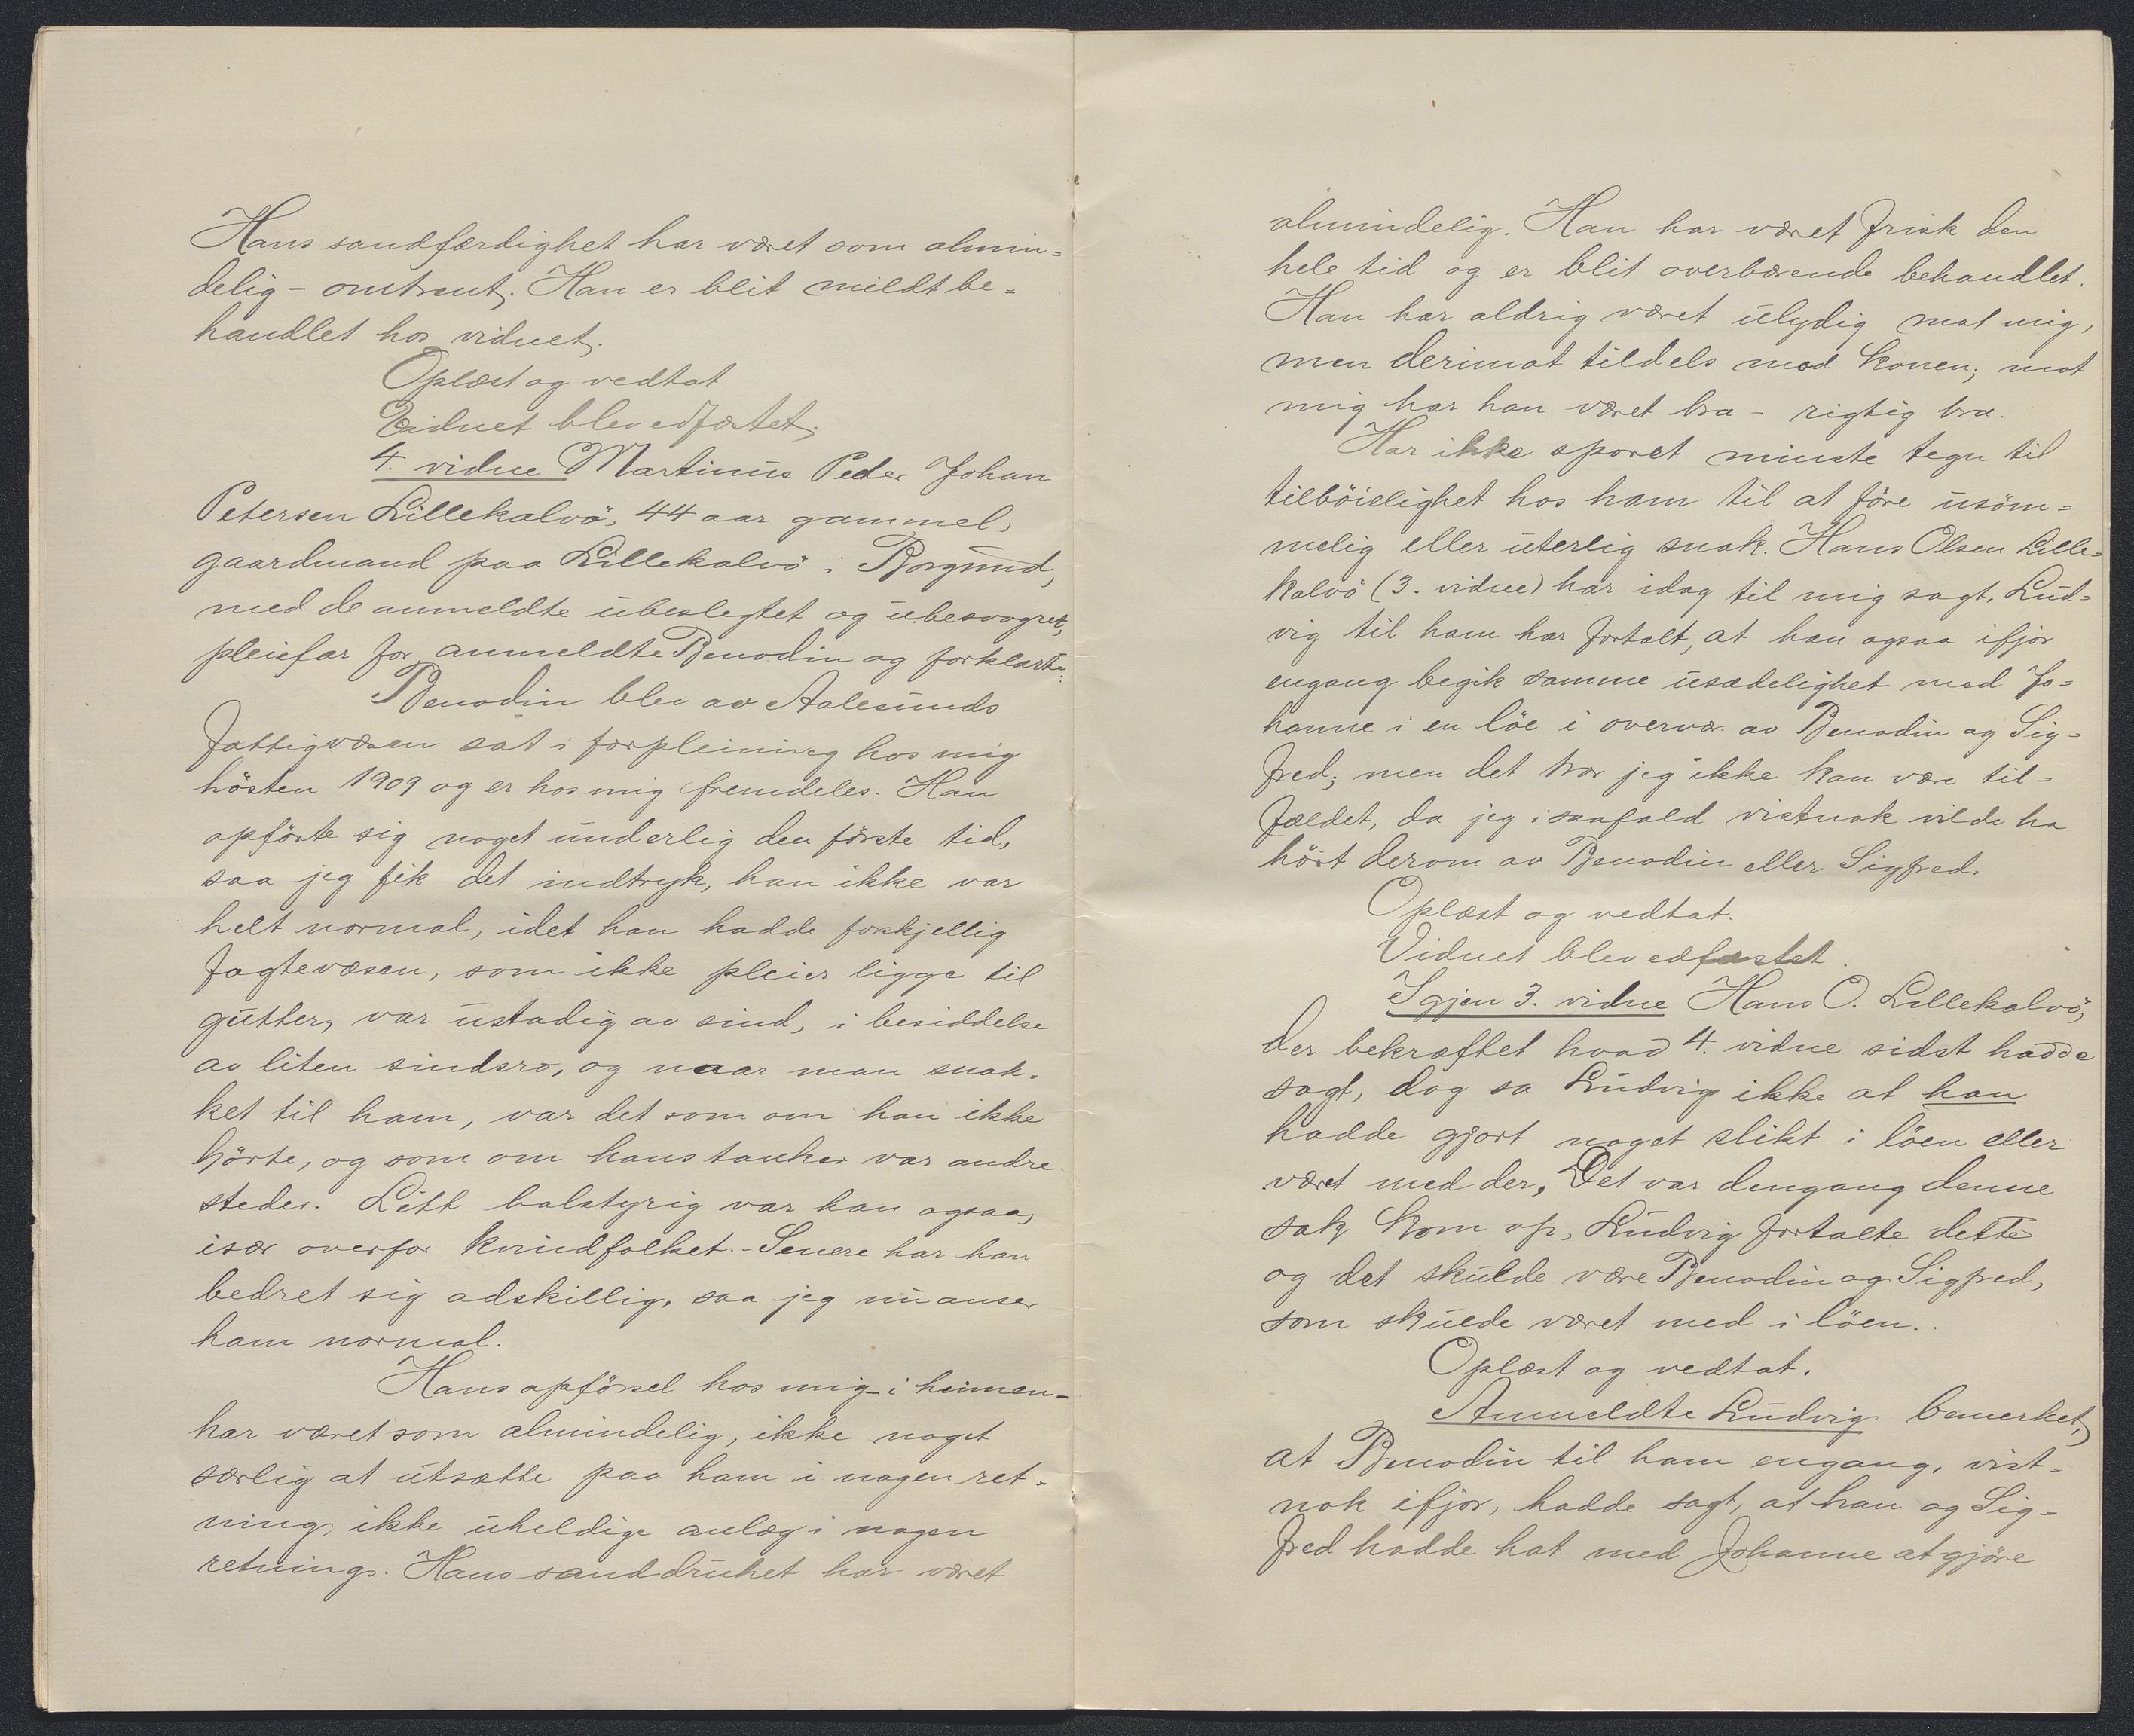 Hans sandfærdighet har været som almin=
delig - omtrent. Han er blit mildt be=
handlet hos vidnet.
Oplæst og vedtat
Vidnet blev edfæstet.
4. vidne Martinus Peder Johan
Petersen Lillekalvö, 44 aar gammel,
gaardmand paa Lillekalvö i Borgund,
med de anmeldte ubeslegtet og ubesvogret,
pleiefar for anmeldte Benodin og forklarte:
Benodin blev av Aalesunds
Fattigvæsen sat i forpleining hos mig
hösten 1909 og er hos mig fremdeles. Han
opförte sig noget underlig den förste tid,
saa jeg fik det indtryk, han ikke var
helt normal, idet han hadde forskjellig
fagtevæsen, som ikke pleier ligge til
gutter, var ustadig av sind, i besiddelse
av liten sindsro, og naar man snak-
ket til ham, var det som om han ikke
hörte, og som om hans tanker var andre
steder. Litt balstyrig var han ogsaa,
især overfor kvindfolket. - Senere har han
bedret sig adskillig, saa jeg nu anser
ham normal.
Hans opförsel hos mig - i heimen -
har været som almindelig, ikke noget
særlig at utsætte paa ham i nogen ret-
ning, ikke uheldige anlæg i nogen
retning. Hans sanddruhet har været
almindelig. Han har været frisk den
hele tid og er blit overbærende behandlet.
Han har aldrig været ulydig mot mig,
men derimot tildels mod konen; mot
mig har han været bra - rigtig bra.
Har ikke sporet minste tegn til
tilböielighet hos ham til at före usöm=
melig eller uterlig snak. Hans Olsen Lille=
kalvö (3. vidne) har idag til mig sagt, Lud=
vig til ham har fortalt, at han ogsaa ifjor
engang begik samme usædelighet med Jo=
hanne i en löe i overvær av Benodin og Sig=
fred; men det tror jeg ikke kan være til=
fældet, da jeg isaafald vistnok vilde ha
hört derom av Benodin eller Sigfred.
Oplæst og vedtat.
Vidnet blev edfæstet.
Igjen 3. vidne Hans O. Lillekalvö,
der bekræftet hvad 4. vidne sidst hadde
sagt, dog sa Ludvig ikke at han
hadde gjort noget slikt i löen eller
været med der. Det var dengang denne
sak kom op, Ludvig fortalte dette
og det skulde være Benodin og Sigfred,
som skulde været med i löen.
Oplæst og vedtat.
Anmeldte Ludvig bemerket,
at Benodin til ham engang, vist-
nok ifjor, hadde sagt, at han og Sig-
fred hadde hat med Johanne at gjöre